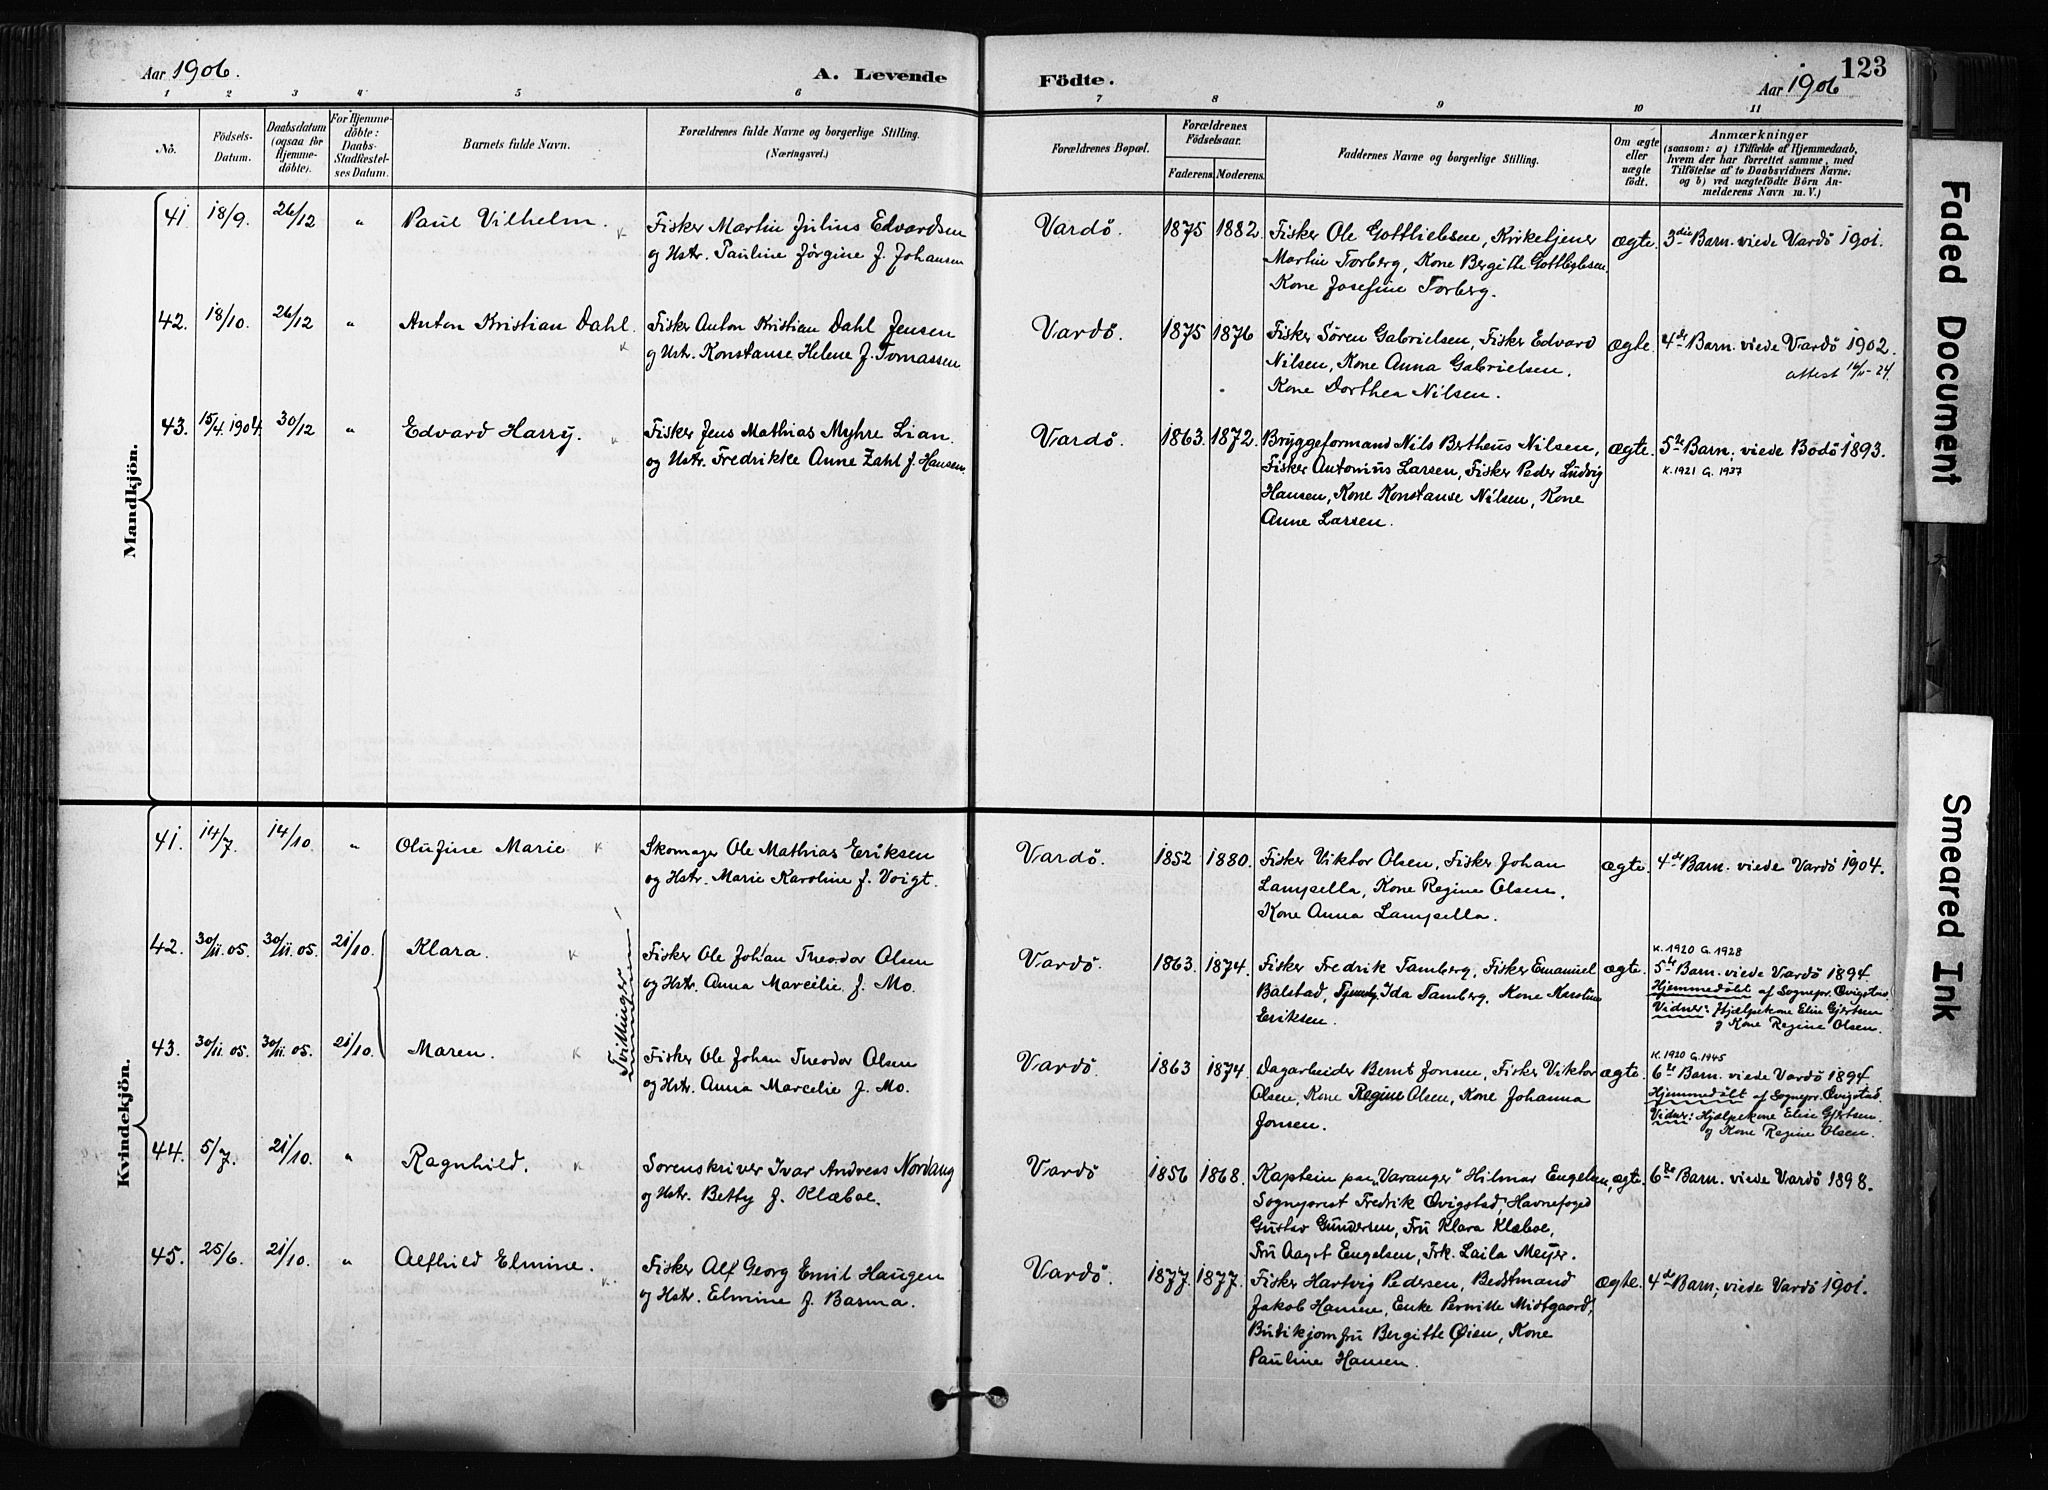 Aar 1906. A. Levende Födte. Aar 1906 123
1 2 3 4 5 6 7 8 9 10 11
Nö.
Födsels-
Datum.
Daabsdatum
(ogsaa för
Hjemme-
döbte).
For Hjemme-
döbte:
Daabs-
Stadfæstel-
ses Datum.
Barnets fulde Navn.
Forældrenes fulde Navne og borgerlige Stilling.
(Næringsvei.)
Forældrenes Bopæl.
Forældrenes
Födselsaar.
Faderens. Moderens.
Faddernes Navne og borgerlige Stilling.
Om ægte
eller
uægte
födt.
Anmærkninger
(saasom: a) i Tilfælde af Hjemmedaab,
hvem der har forrettet samme, med
Tilföielse af to Daabsvidners Navne;
og b) ved uægtefödte Börn An-
melderens Navn m. V.)
Mandkjön.
41 18/9. 26/12 " Paul Vilhelm. K Fisker Martin Julius Edvardsen Vardö. 1875 1882. Fisker Ole Gottliebsen, Kirketjener ægte. 3die Barn. viede Vardö 1901.
og Hstr. Pauline Jørgine f. Johansen Martin Torberg, Kone Bergitte Gottliebsen,
Kone Josefine Torberg.
42. 18/10. 26/12 " Anton Kristian Dahl. K Fisker Anton Kristian Dahl Jensen Vardö. 1875 1876 Fisker Sören Gabrielsen, Fisker Edvard ægte. 4de Barn. viede Vardö 1902.
og Hstr. Konstanse Helene f. Tomassen Nilsen, Kone Anna Gabrielsen. attest 16/11-24.
Kone Dorthea Nilsen.
43. 15/4. 1904. 30/12 " Edvard Harry. K Fisker Jens Mathias Myhre Lian. Vardö. 1863. 1872. Bryggeformand Nils Bertheus Nilsen, ægte. 5te Barn; viede Bodö 1893.
og Hstr. Fredrikke Anne Zahl f. Hansen. Fisker Antonius Larsen, Fisker Peder Ludvig K. 1921 G. 1937
Hansen, Kone Konstanse Nilsen, Kone
Anne Larsen.
Kvindekjön.
41. 14/7. 14/10. " Olufine Marie K Skomager Ole Mathias Eriksen Vardö. 1852 1880. Fisker Viktor Olsen, Fisker Johan ægte. 4de Barn. viede Vardö 1904.
og Hstr. Marie Karoline f. Voigt. Lampella, Kone Regine Olsen,
Kone Anna Lampella.
Tvillinger
42. 30/11.05. 30/11.05. 21/10. Klara. K Fisker Ole Johan Theodor Olsen Vardö. 1863. 1874. Fisker Fredrik Tamberg, Fisker Emanuel ægte. K. 1920 G. 1928
5te Barn. viede Vardö 1894.
og Hstr. Anna Marcelie f. Mo. Balstad, Ida Tamberg, Kone Karoline Hjemmedöbt af Sognepr. Øvigstad.
Eriksen. Vidner: Hjælpekone Elise Gjertsen
og Kone Regine Olsen.
43. 30/11.05. 30/11.05. 21/10. Maren. K Fisker Ole Johan Theodor Olsen Vardö. 1863 1874. Dagarbeider Bernt Jonsen, Fisker Viktor ægte. K. 1920 G. 1945
6te Barn. viede Vardö 1894
og Hstr. Anna Marcelie f. Mo. Olsen, Kone Regine Olsen, Kone Johanna Hjemmedöbt af Sognepr. Øvigstad.
Jonsen. Vidner: Hjælpekone Elise Gjertsen
og Kone Regine Olsen.
44. 5/7. 21/10. " Ragnhild. K Sorenskriver Ivar Andreas Nordang Vardö 1856 1868. Kaptein paa "Varanger" Hilmar Engelsen, ægte. 6te Barn. viede Vardö 1898.
og Hstr. Betty f. Klæboe. Sogneprest Fredrik Øvigstad, Havnefoged
Gustav Gundersen, Fru Klara Klæboe,
Fru Aagot Engelsen, Frk. Laila Meyer.
45. 25/6. 21/10. " Alfhild Elmine. K. Fisker Alf Georg Emil Haugen Vardö. 1877. 1877. Fisker Hartvig Pedersen, Bedstmand ægte. 4de Barn; viede Vardö 1901.
og Hstr. Elmine f. Basma. Jakob Hansen, Enke Pernille Midtgaard,
Butikjomfru Bergitte Øien, Kone
Pauline Hansen.
Faded Document
Smeared Ink